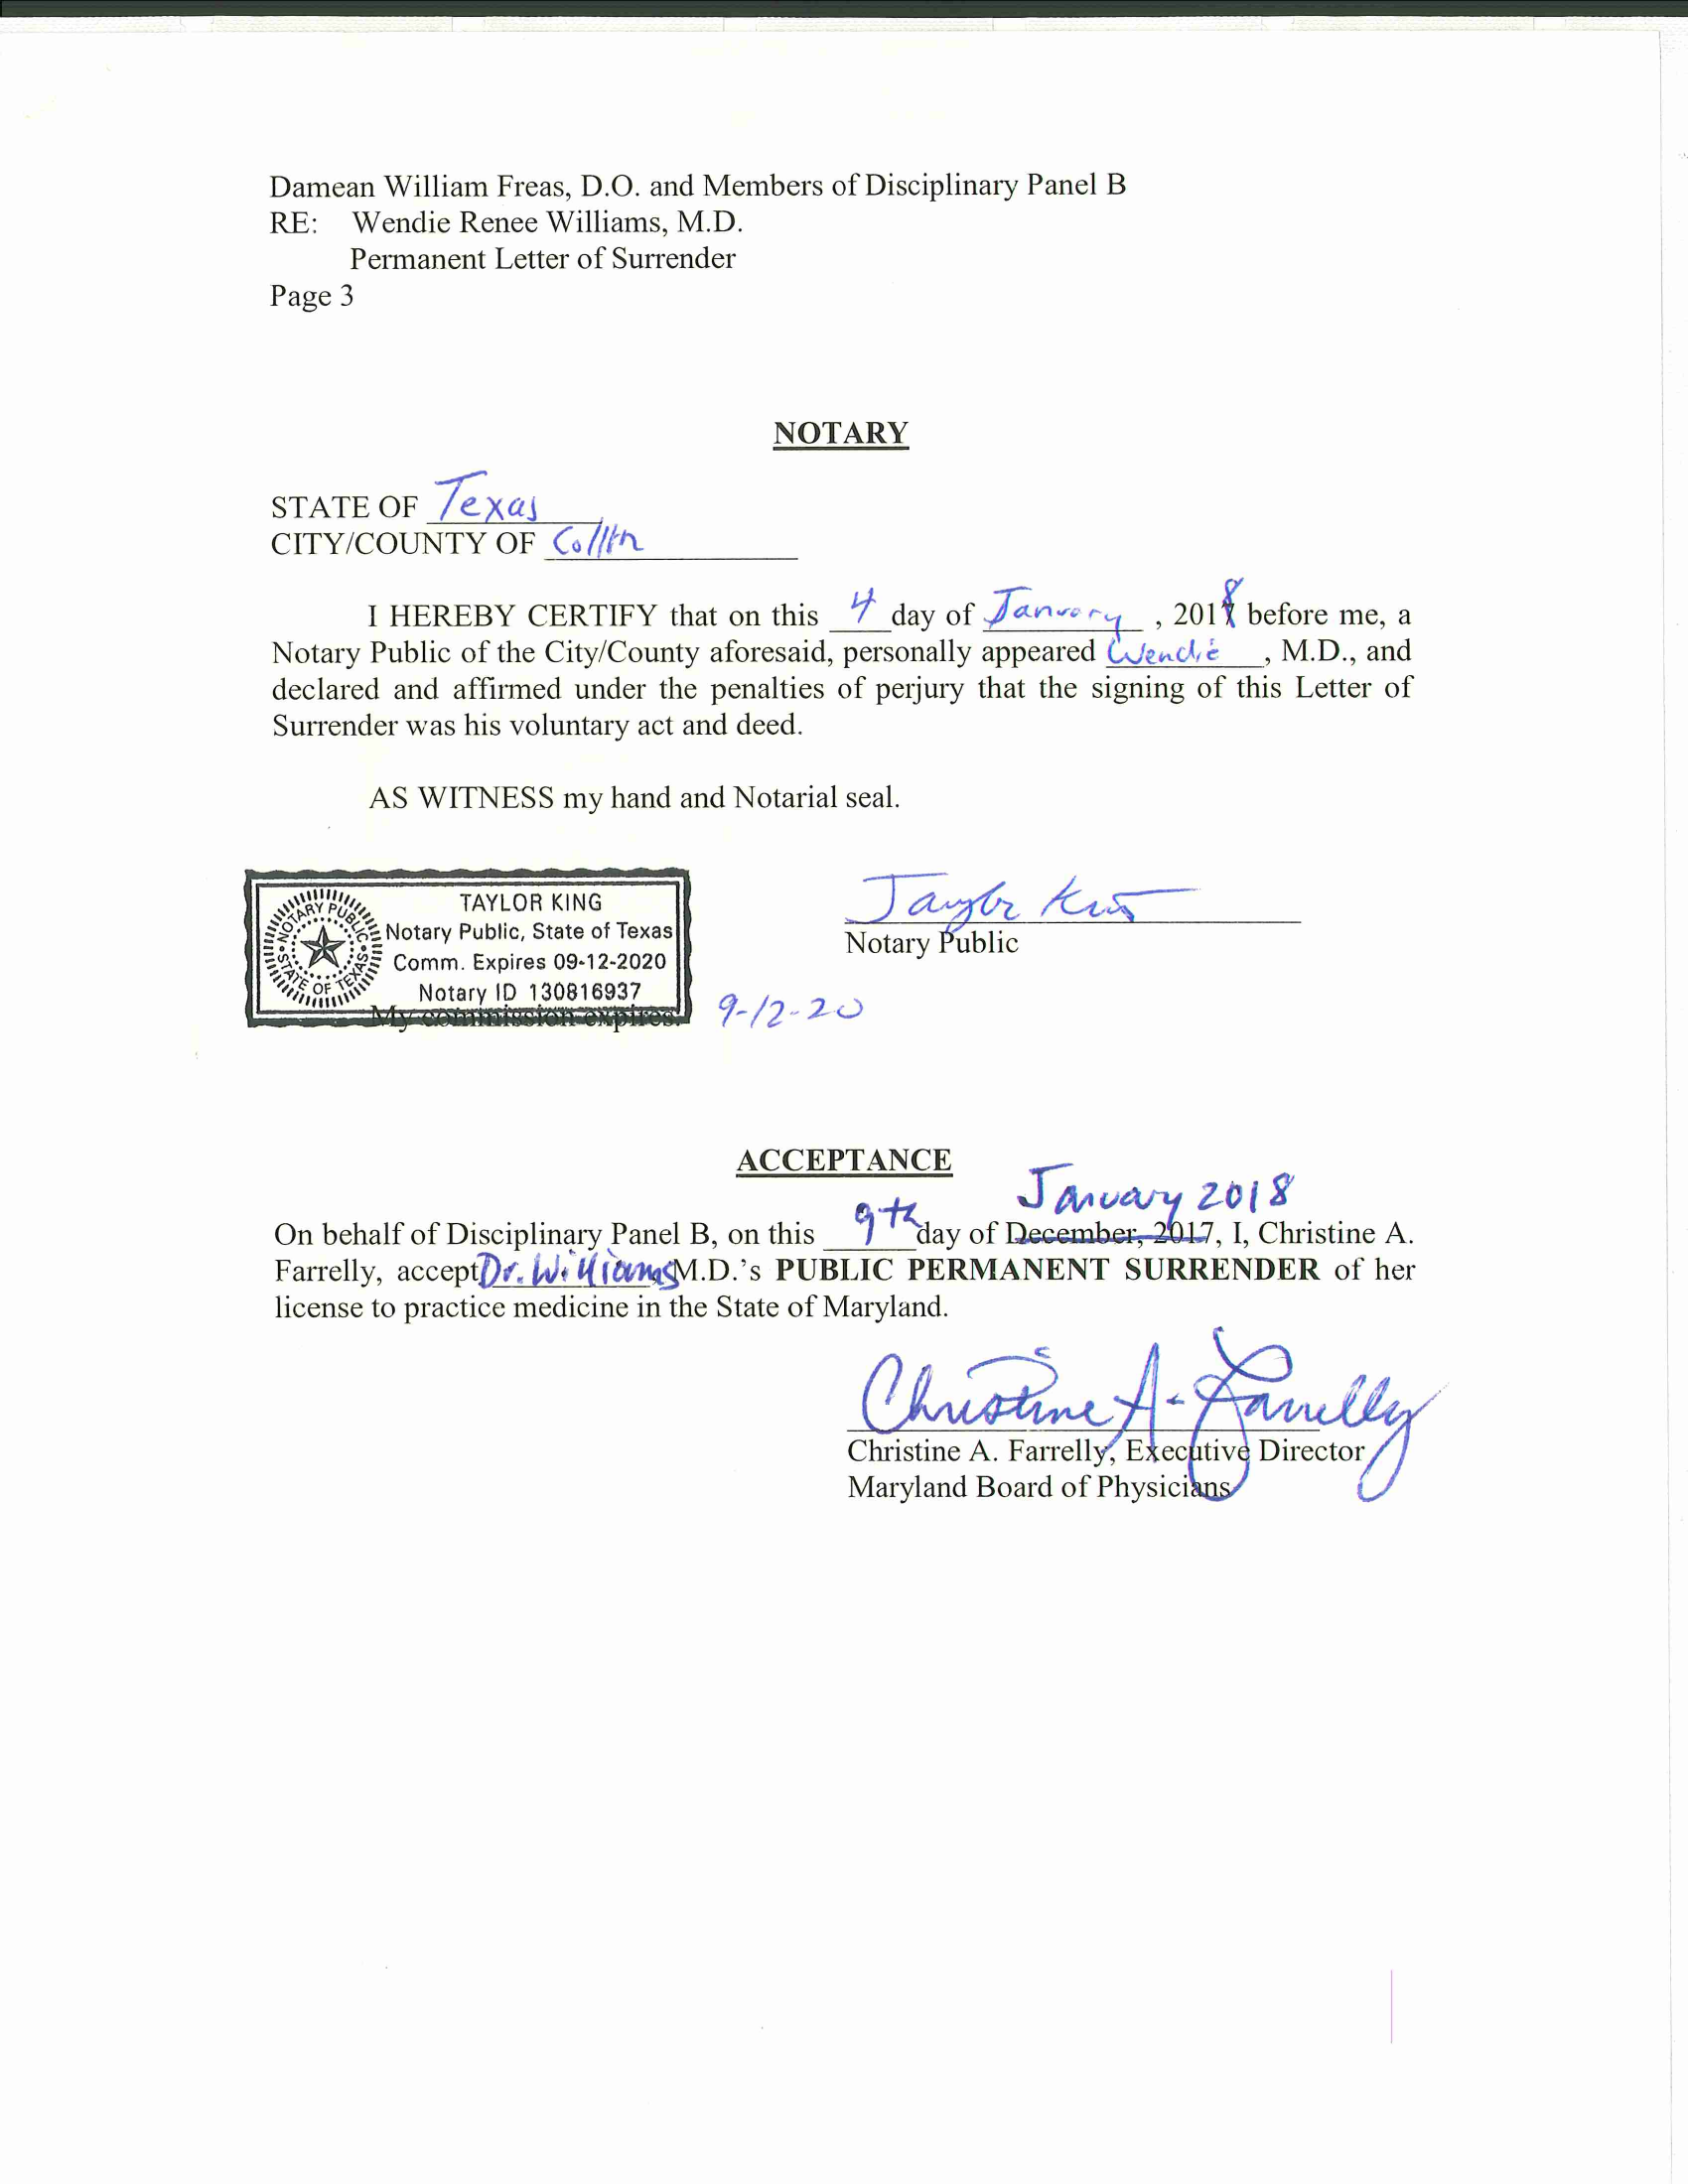 Damean William Freas, D.O. and Members of Disciplinary Panel B
RE: Wendie Renee Williams, M.D.
Permanent Letter of Surrender
Page 3
NOTARY
STATE OF Texas
CITY/COUNTY OF Collin
I HEREBY CERTIFY that on this 4 day of January, 2018 before me, a
Notary Public of the City/County aforesaid, personally appeared Wendie, M.D., and
declared and affirmed under the penalties of perjury that the signing of this Letter of
Surrender was his voluntary act and deed.
AS WITNESS my hand and Notarial seal.
NOTARY PUBLIC STATE OF TEXAS
TAYLOR KING
Notary Public, State of Texas
Comm. Expires 09-12-2020
Notary ID 130816937
Taylor King
Notary Public
My commission expires: 9-12-20
ACCEPTANCE
January 2018
On behalf of Disciplinary Panel B, on this 9th day of December, 2017, I, Christine A.
Farrelly, accept Dr. Williams M.D.'s PUBLIC PERMANENT SURRENDER of her
license to practice medicine in the State of Maryland.
Christine A. Farrelly
Christine A. Farrelly, Executive Director
Maryland Board of Physicians